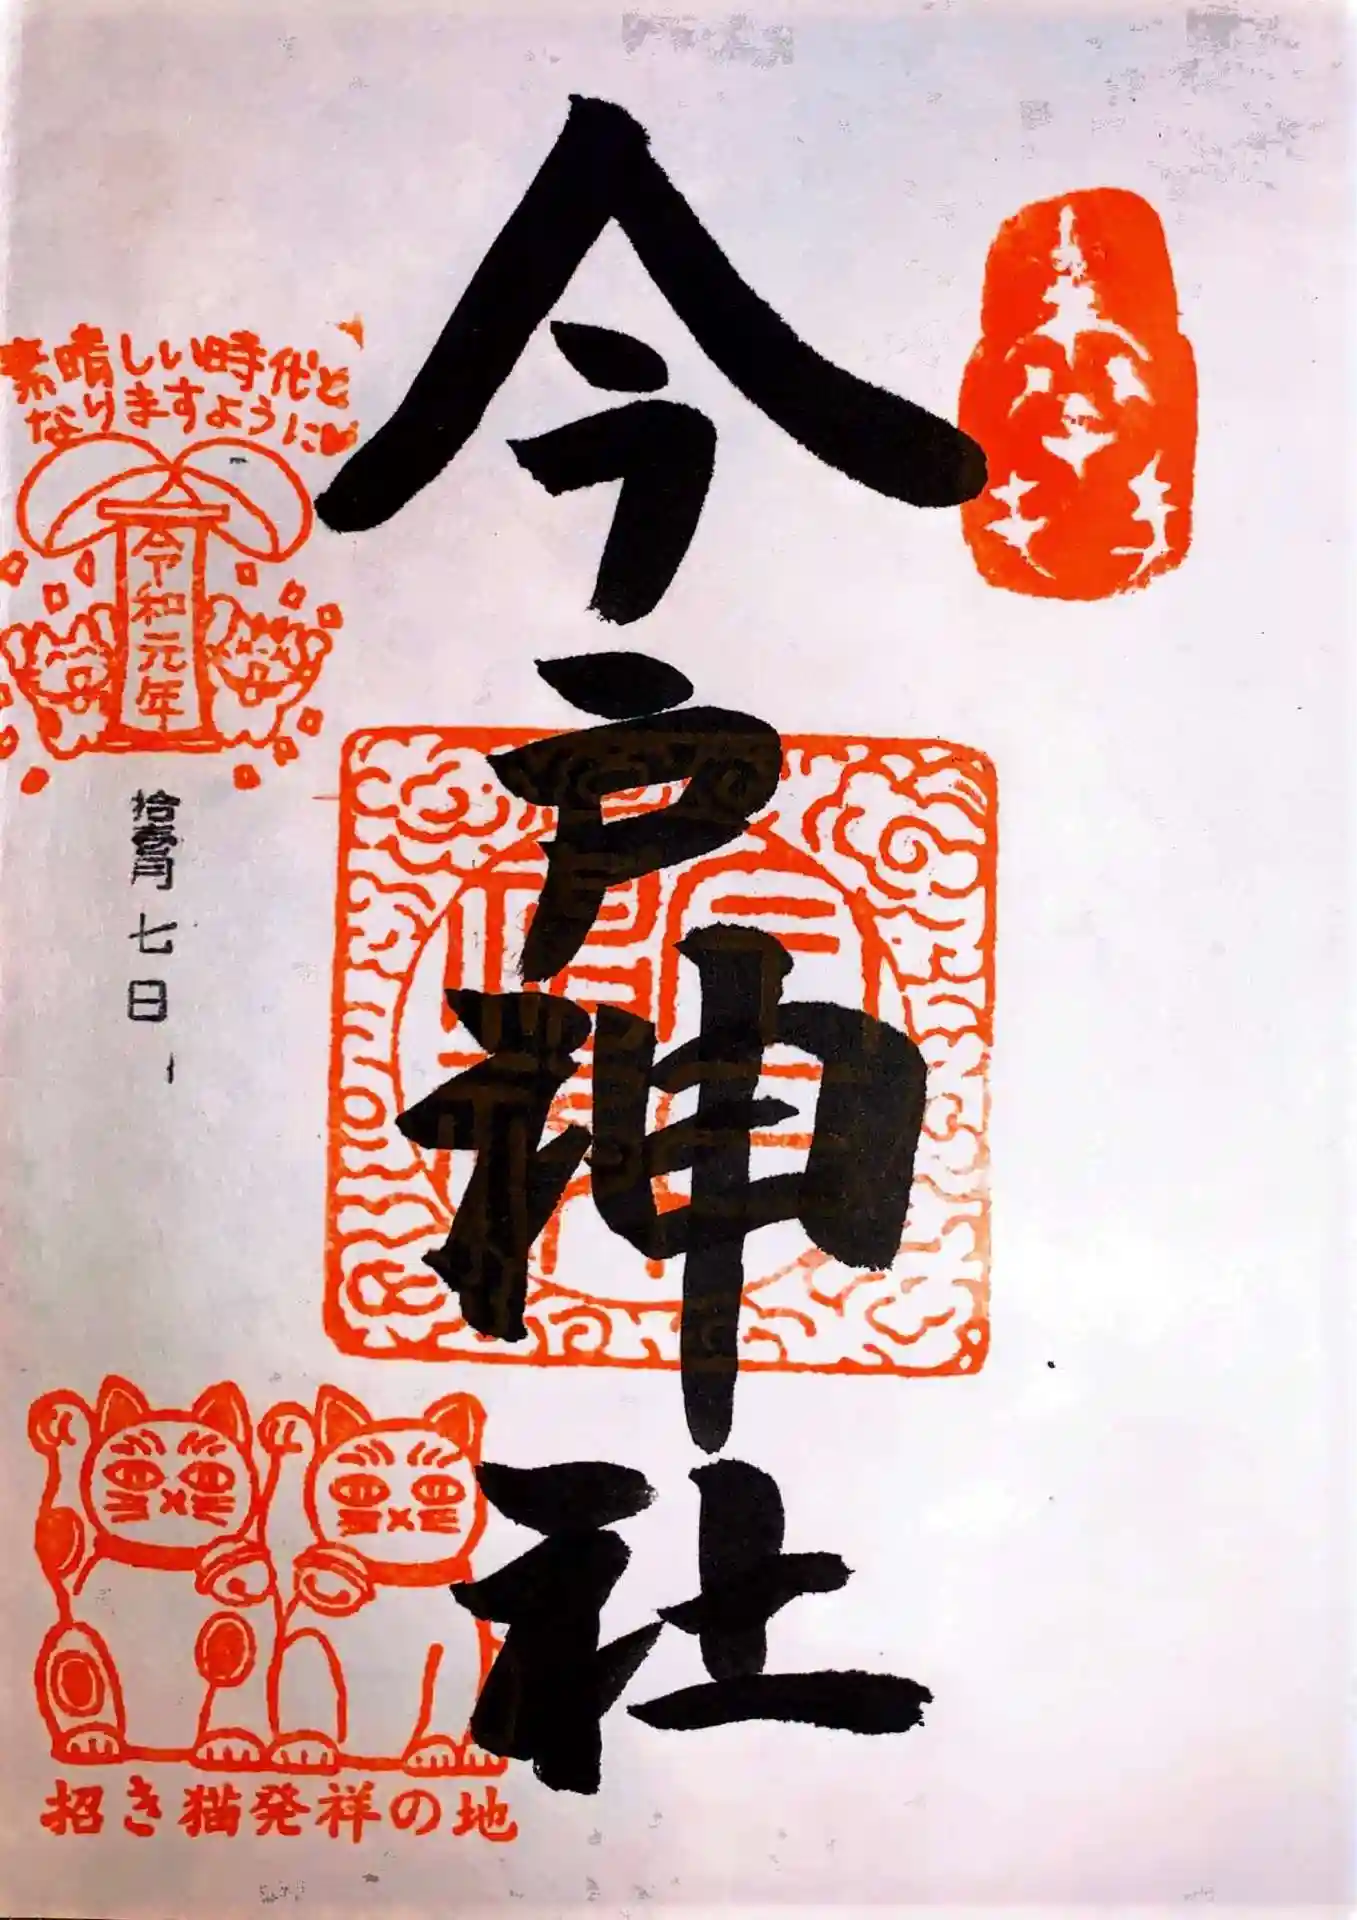 今戸神社
素晴しい時代と
なりますように
令和元年
拾壱月
七日
招き猫発祥の地